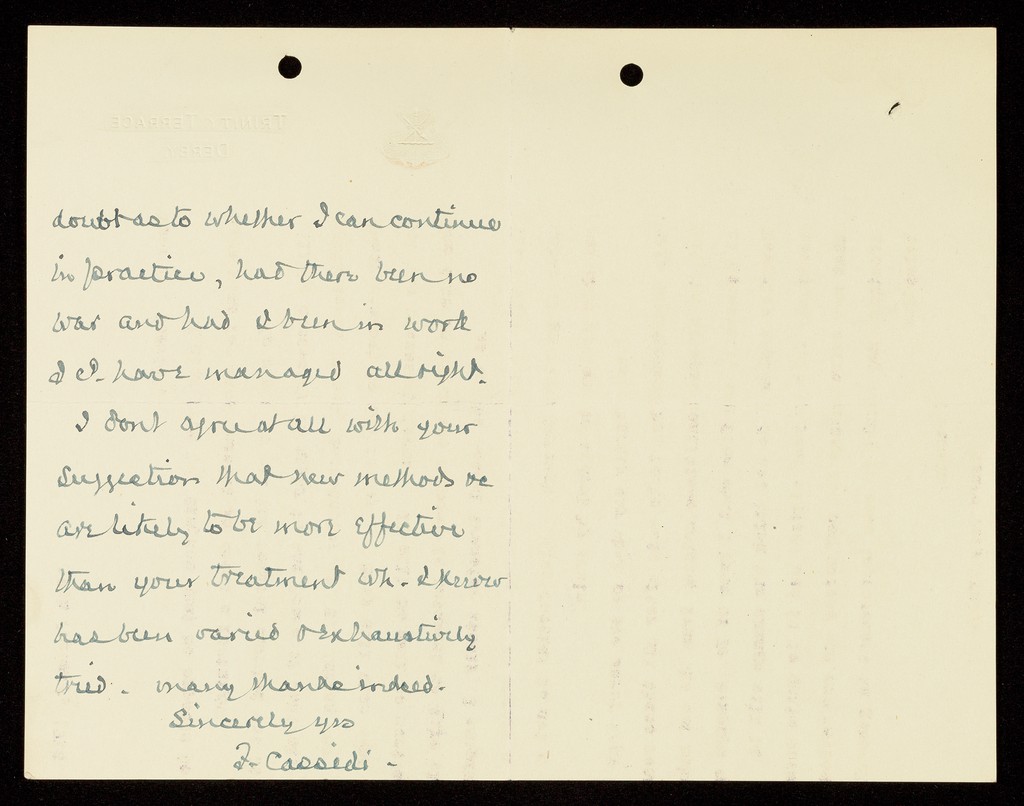 TRINITY TERRACE
DERBY
doubt as to whether I can continue
in practice, had there been no
war and had I been in work
I cd. have managed all right.
I dont agree at all with your
suggestion that new methods &c
are likely to be more effective
than your treatment wh. I know
has been varied & exhaustively
tried. many thanks indeed.
Sincerely yrs
F. Cassidi -